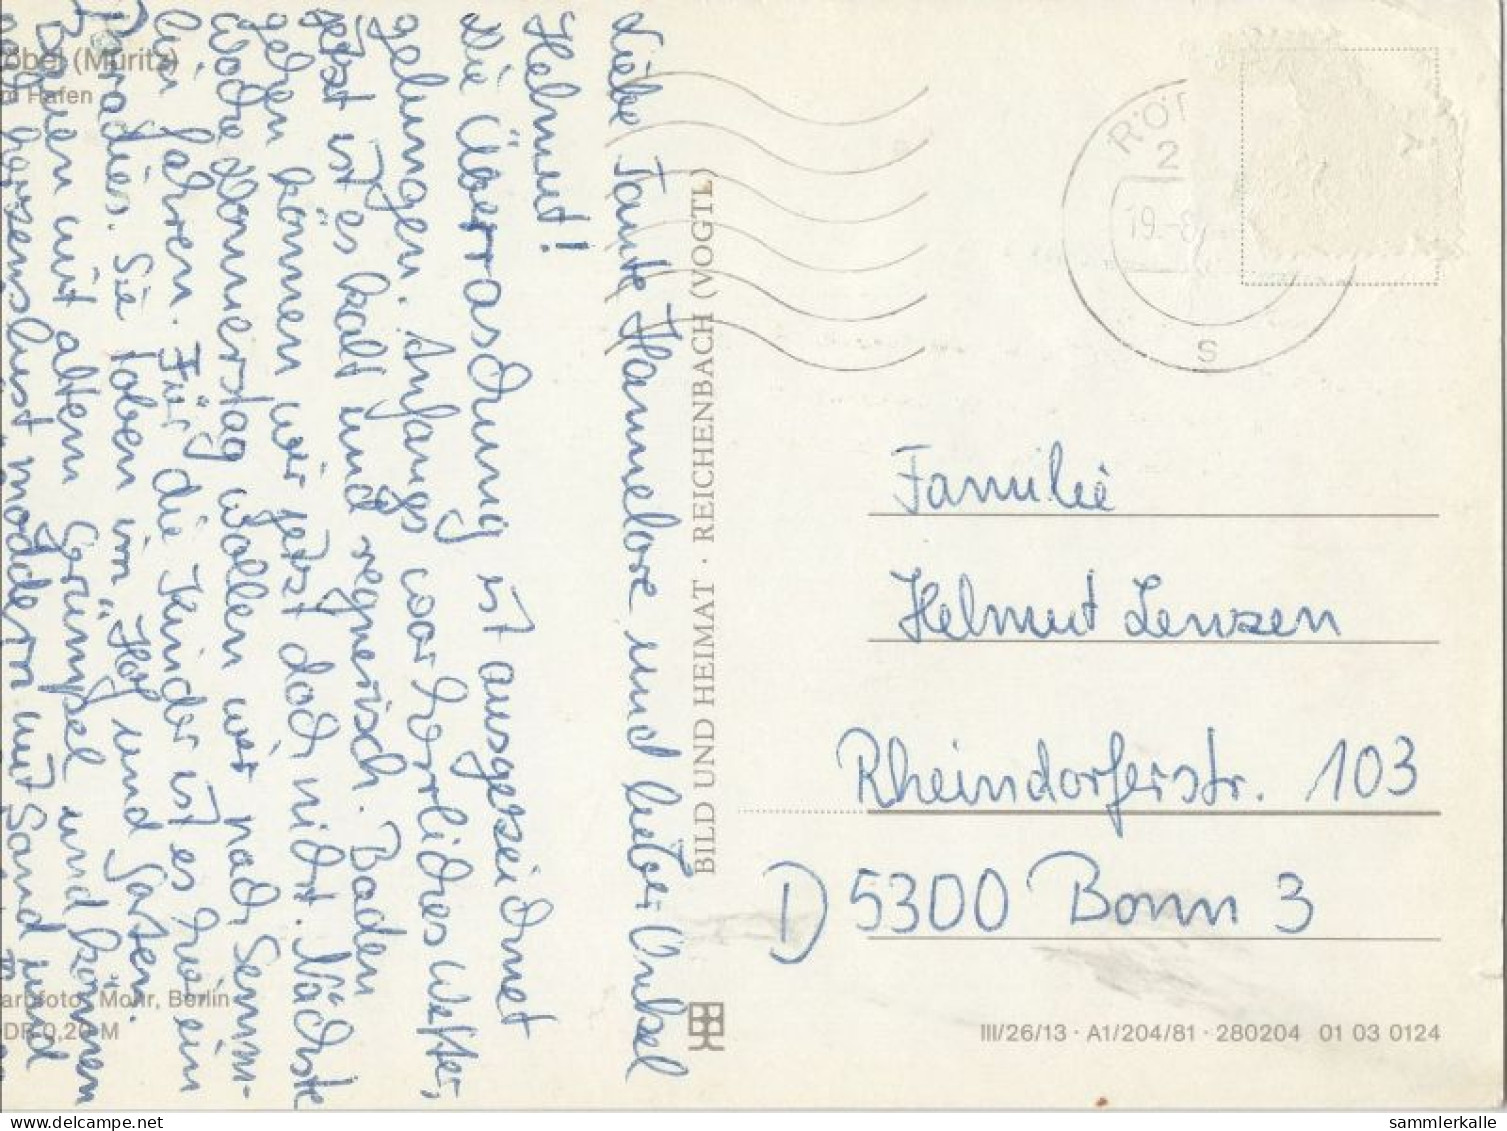 Röbel (Müritz)
Am Hafen
Liebe Tante Hannelore und lieber Onkel
Helmut!
Die Überraschung ist ausgezeichnet
gelungen. Anfangs war herrliches Wetter,
jetzt ist es kalt und regnerisch. Baden
gehen können wir jetzt doch nicht. Nächste
Woche Donnerstag wollen wir nach Semm-
lin fahren. Für die Kinder ist es hier ein
Paradies. Sie toben im Hof und Garten.
Bauen mit altem Gerümpel und können
nach herzenslust moddern mit Sand und
Farbfoto: Mohr, Berlin
DDR 0,20 M
BILD UND HEIMAT · REICHENBACH (VOGTL)
RÖ
2
19.-8
s
Familie
Helmut Lenzen
Rheindorferstr. 103
D 5300 Bonn 3
III/26/13 · A1/204/81 · 280204 01 03 0124
sammlerkalle